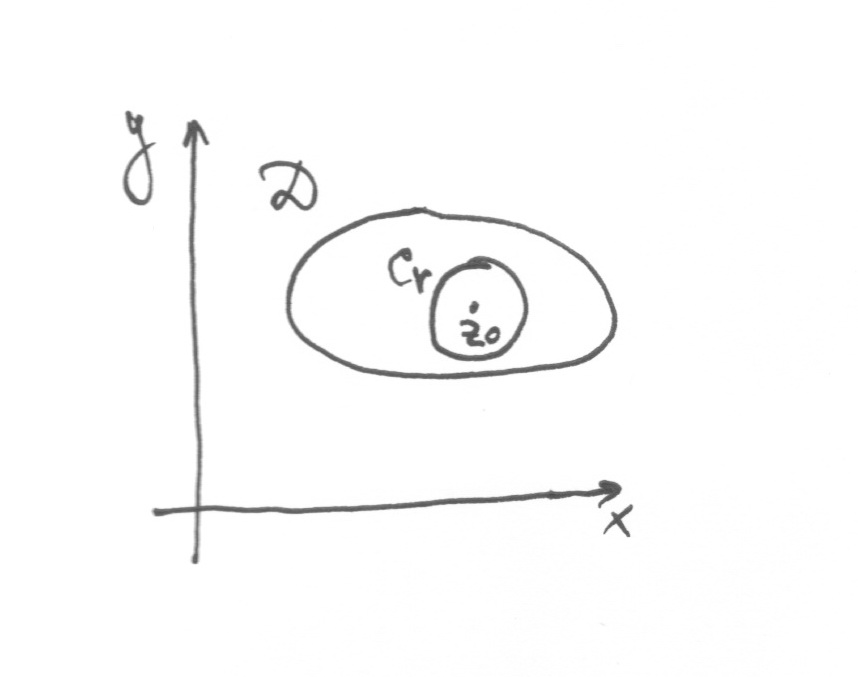 y
D
Cr
z0
x